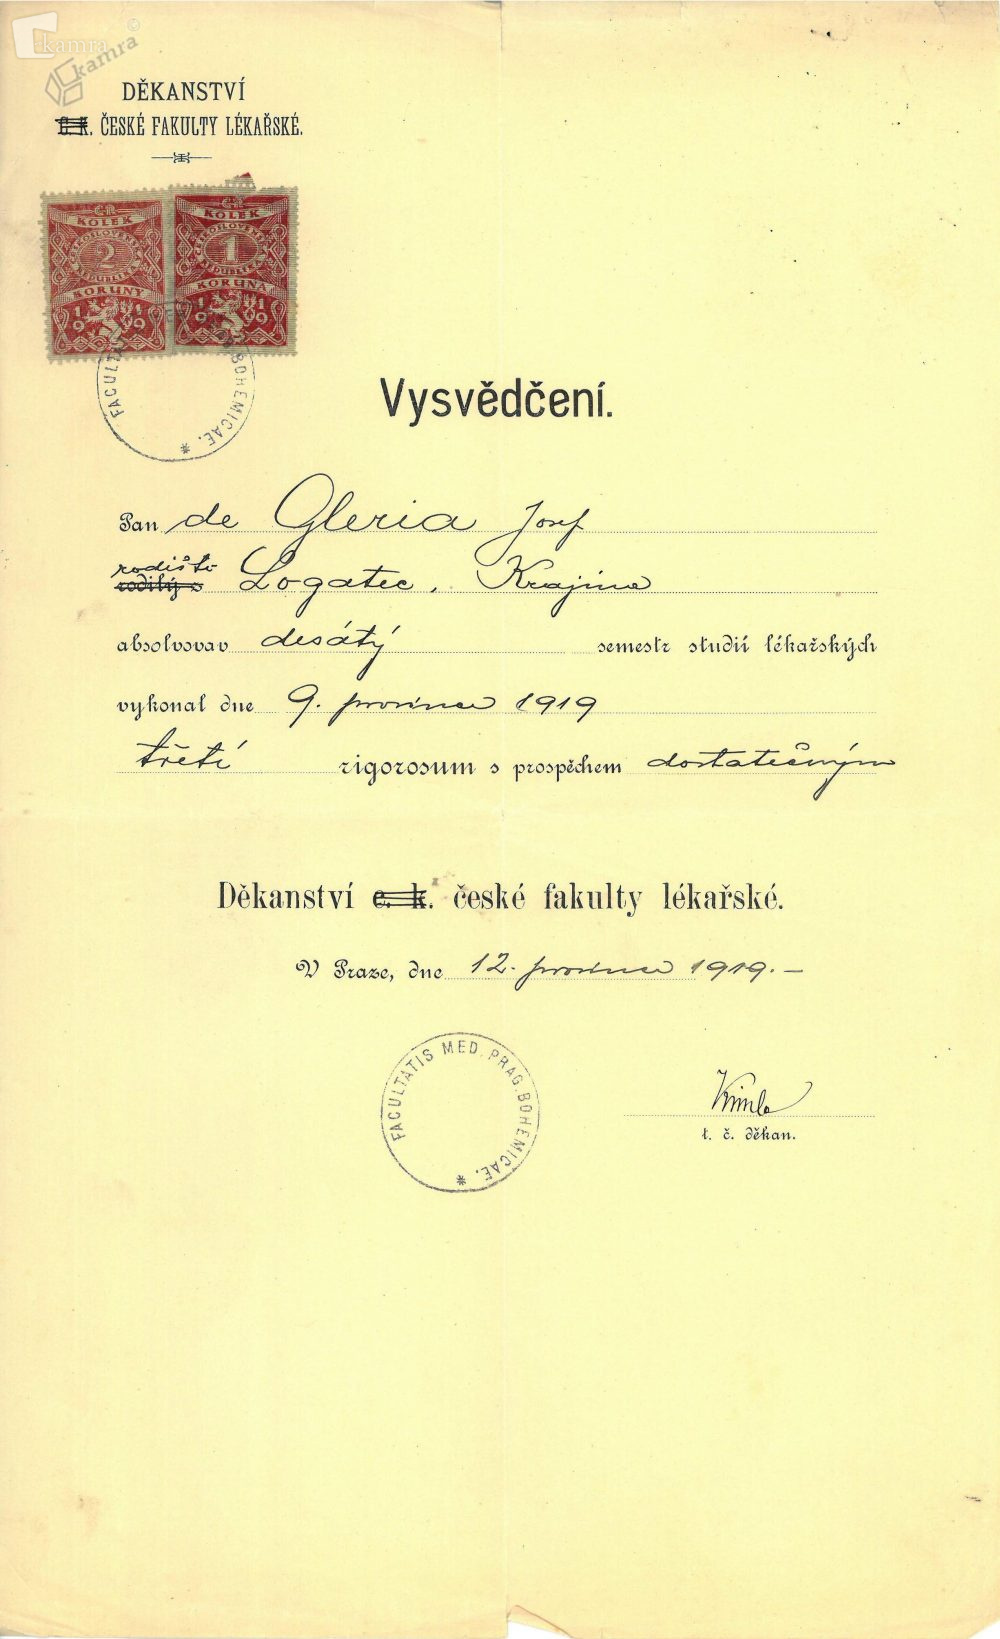 kamra
kamra
©
DĚKANSTVÍ
C. K. ČESKÉ FAKULTY LÉKAŘSKÉ.
Č·R KOLEK
ČESKOSLOVENSKÁ
2
REPUBLIKA
KORUNY
1919
Č·R KOLEK
ČESKOSLOVENSKÁ
1
REPUBLIKA
KORUNA
1919
FACULTATIS BOHEMICAE. *
Vysvědčení.
Pan de Gleria Josef
rodiště
rodilý z Logatec, Krajina
absolvovav desátý semestr studií lékařských
vykonal dne 9. prosince 1919
třetí rigorosum s prospěchem dostatečným
Děkanství c. k. české fakulty lékařské.
V Praze, dne 12. prosince 1919.–
FACULTATIS MED. PRAG. BOHEMICAE. *
Kimla
t. č. děkan.